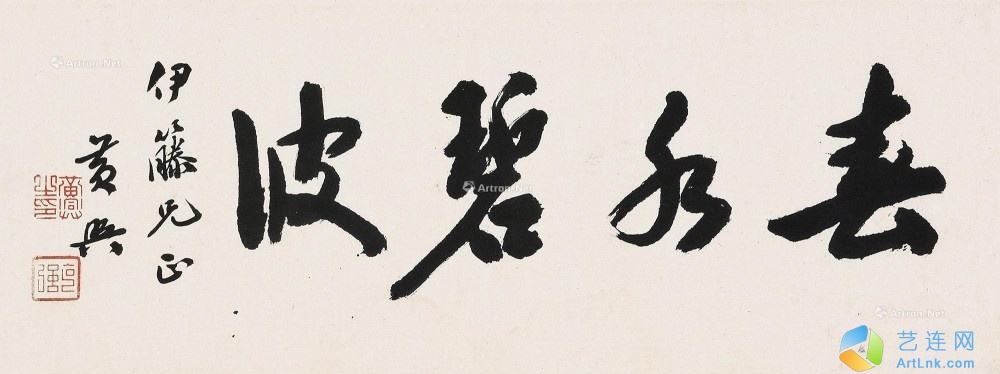 春水碧波
伊籐兄正
黄兴
Artron.Net
Artron.Net
Artron.Net
艺连网
ArtLnk.com